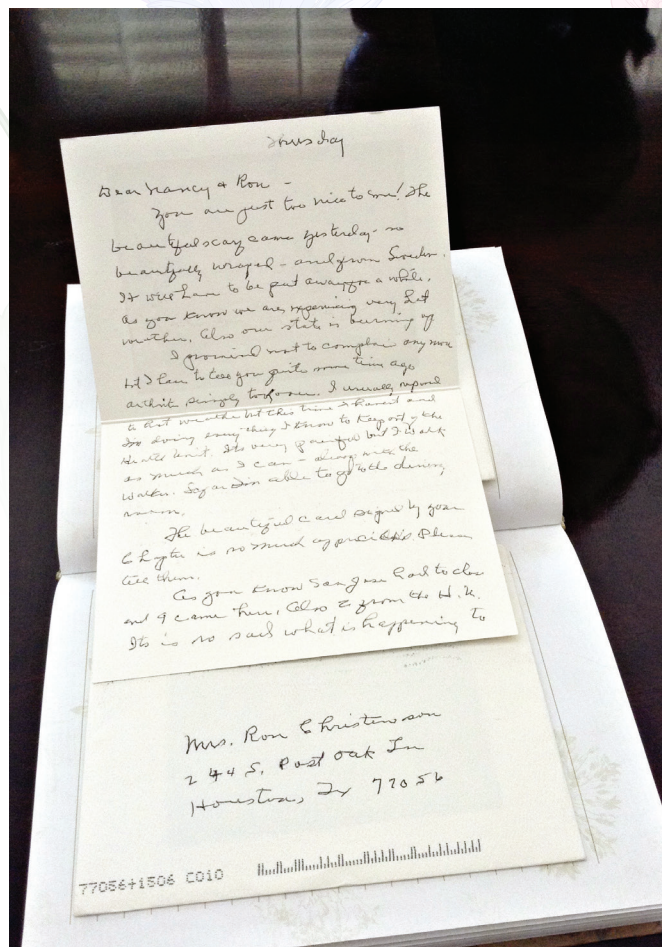 Thursday
Dear Nancy & Ron -
You are just too nice to me! The
beautiful scarf came yesterday - so
beautifully wraped - and from Sweden.
It will have to be put away for a while,
as you know we are experiencing very hot
weather. Also our state is burning up
I promised not to complain any more
but I have to tell you quite some time ago
arthritis simply took over. I usually respond
to hot weather but this time I haven't and
I'm doing every thing I know to keep out of the
Health Unit. Its very painful but I walk
as much as I can - always with the
walker. So far I'm able to go to the dining
room.
The beautiful card signed by your
Chapter is so much appreciated Please
tell them.
As you know San Jose had to close
and 9 came here, Also 2 from the H.U.
Its is so sad what is happening to
Mrs. Ron Christenson
244 S. Post Oak Ln
Houston, Tx 77056
77056+1506 C010